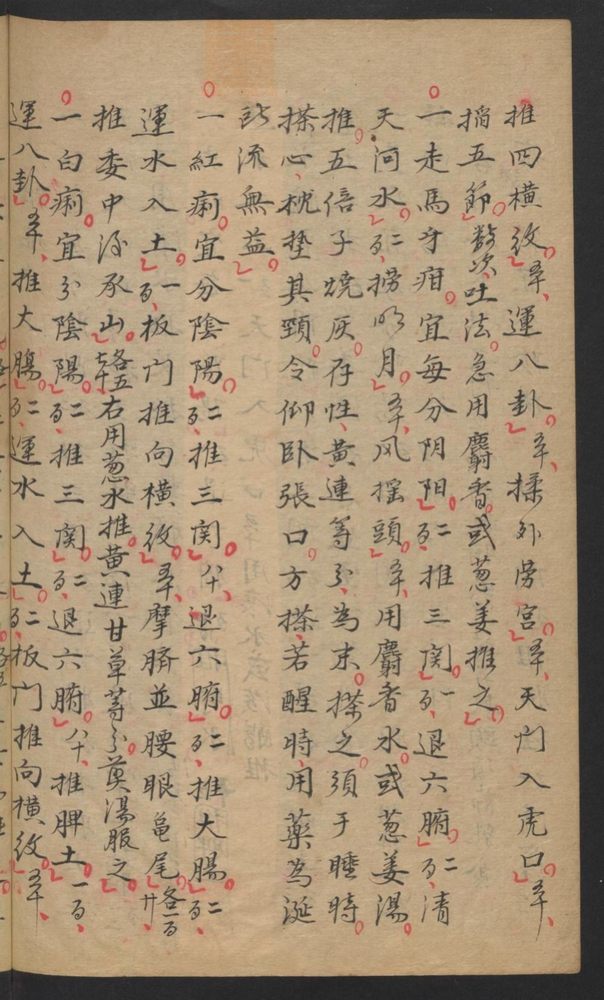 推四横紋五十運八卦五十揉外勞宮五十天门入虎口五十
搯五節数次吐法急用麝香或葱姜推之
一走馬牙疳宜每分阴阳二百推三関一百退六腑二百清
天河水二百撈明月五十风摇頭五十用麝香水或葱姜湯
推五倍子燒灰存性黄連等分為末搽之須于睡時
搽心枕墊其頸令仰卧張口方搽若醒時用藥為涎
所流無益
一紅痢宜分陰陽二百推三関八十退六腑二百推大腸二百
運水入土一百板门推向横紋五十摩臍並腰眼龟尾各一百廿
推委中後承山各五七十右用葱水推黄連甘草等分煎湯服之
一白痢宜分陰陽二百推三関二百退六腑八十推脾土一百
運八卦五十推大腸二百運水入土二百板门推向横紋五十